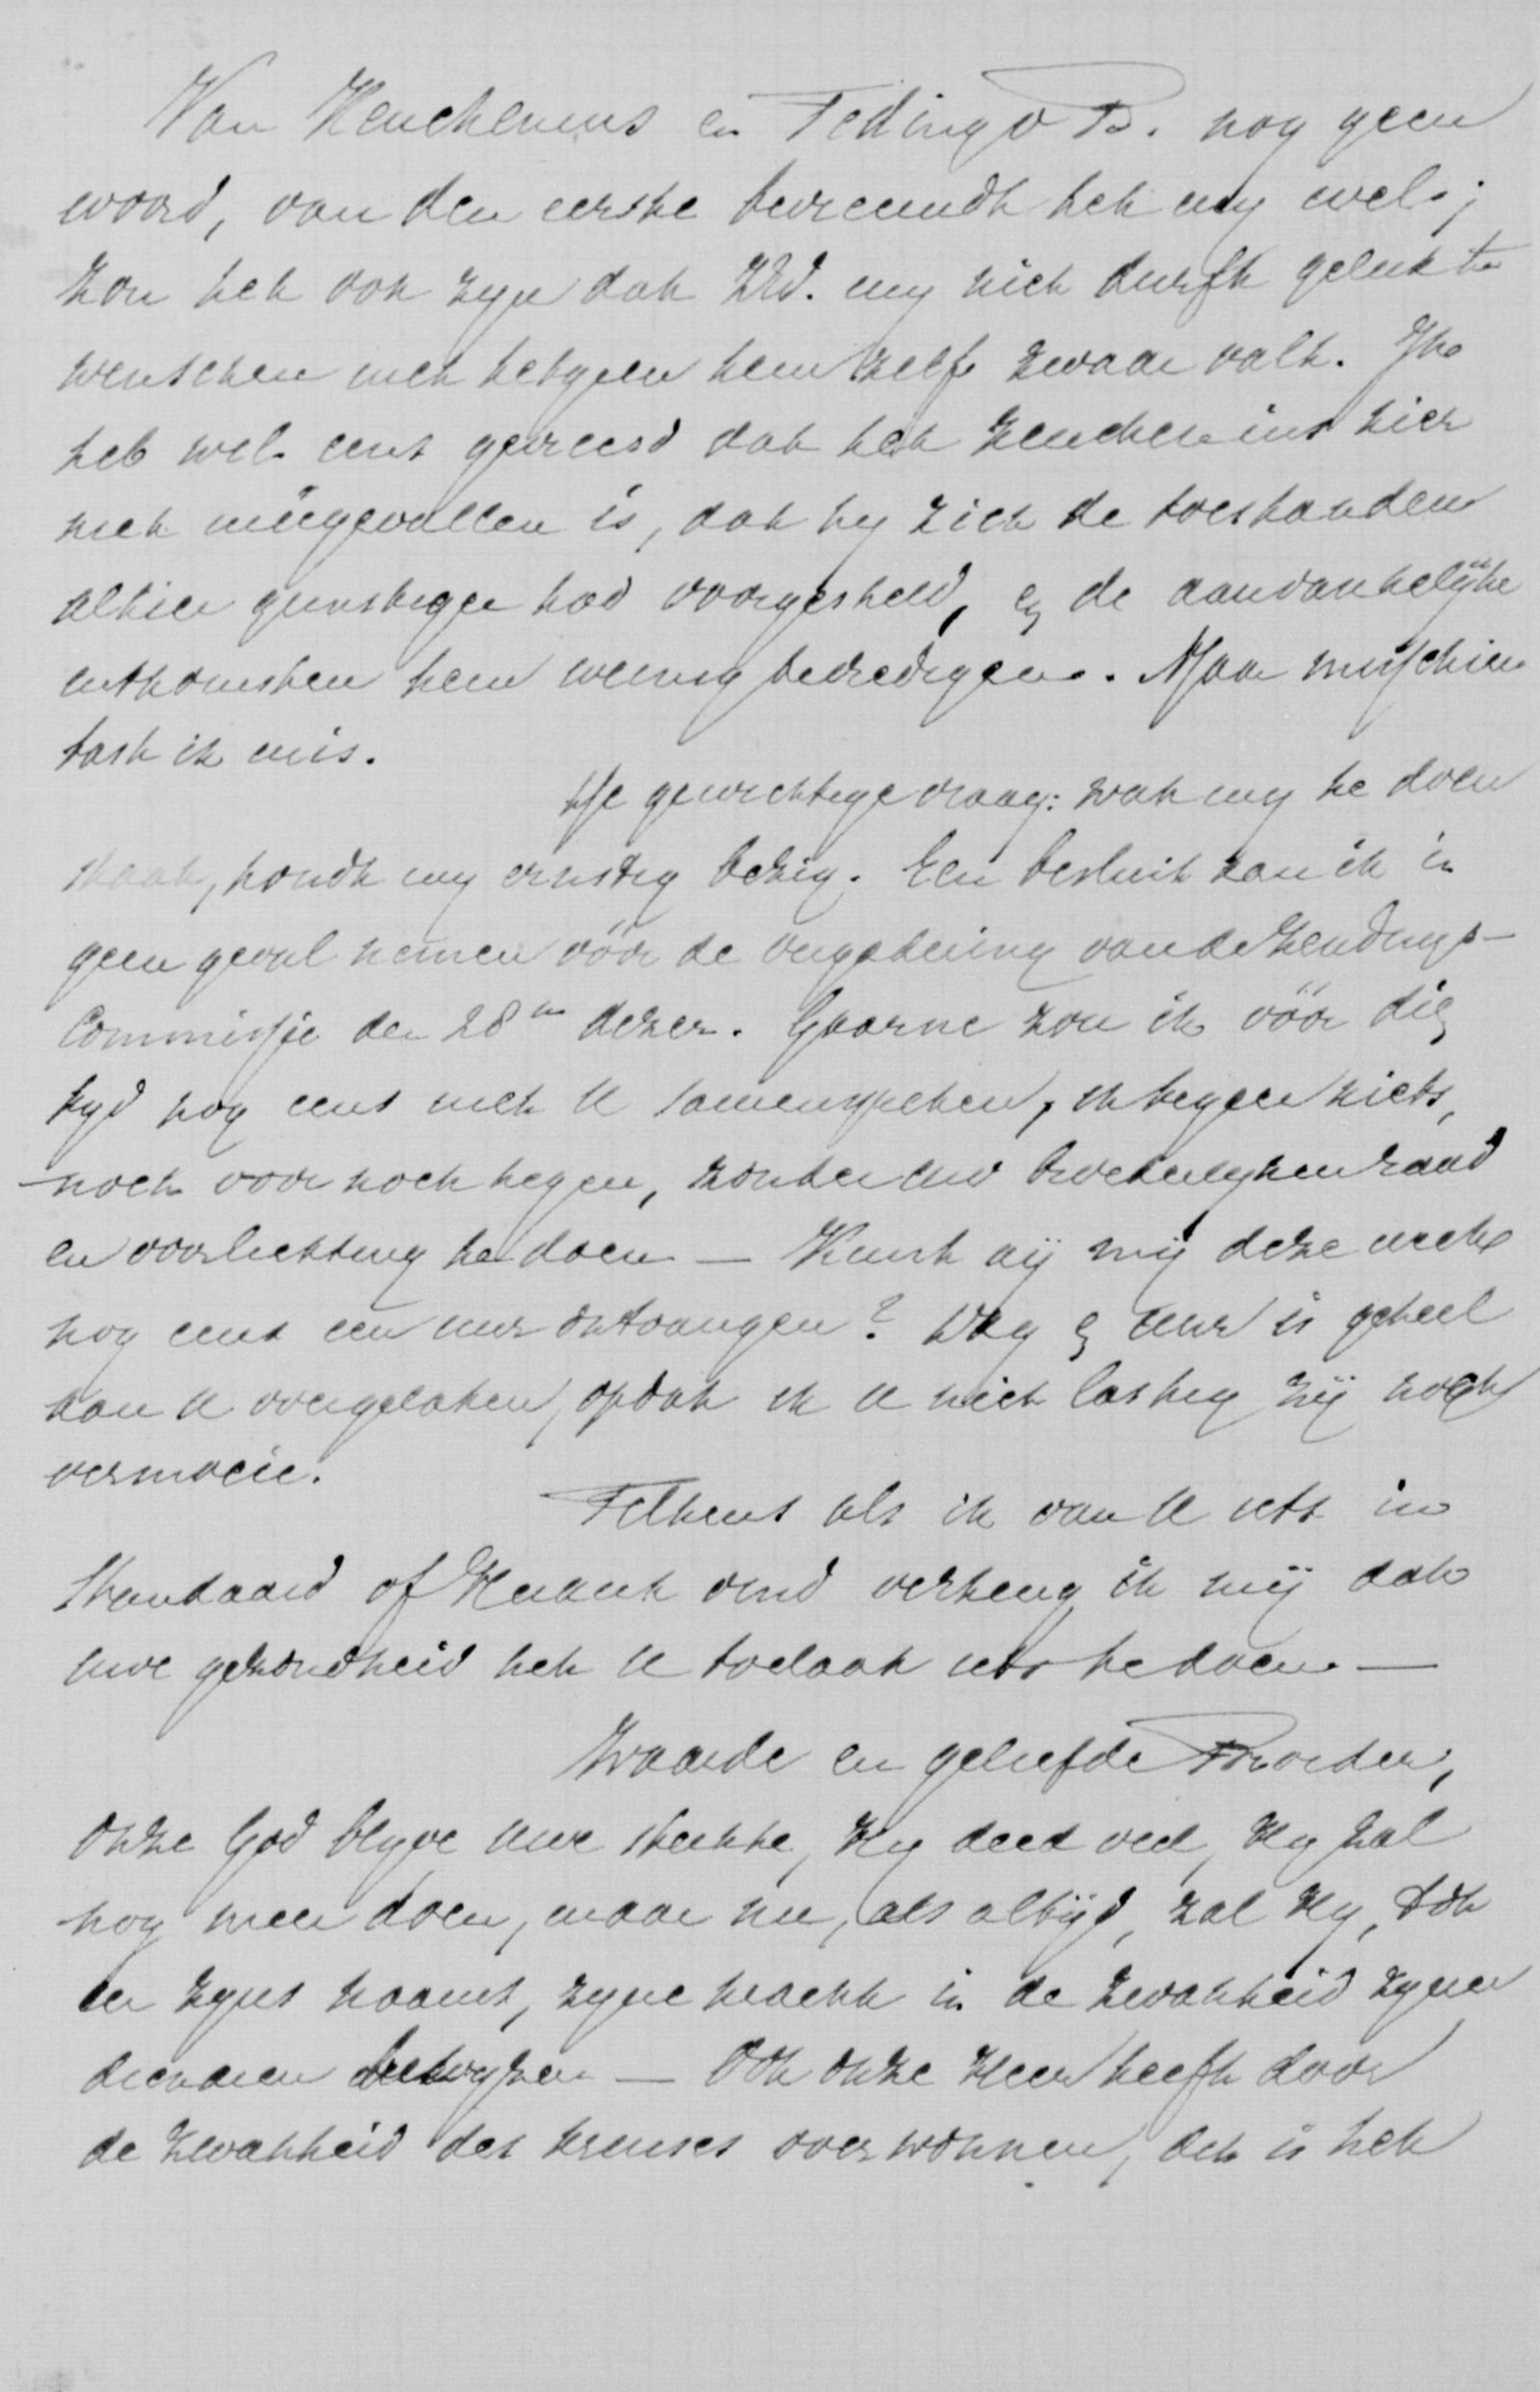 Van Keuchenius en Teding v B. nog geen
woord, van den eerste bevreemdt het my wel;
zou het ook zyn dat ZEd. my niet durft geluk te
wenschen met hetgeen hem zelf zwaar valt. Ik
heb wel eens gevreesd dat het Keuchenius hier
niet meêgevallen is, dat hy zich de toestanden
alhier gunstiger had voorgesteld, en de aanvankelijke
uitkomsten hem weinig bevredigen. Maar misschien
tast ik mis.
De gewichtige vraag: wat my te doen
staat, houdt my ernstig bezig. Een besluit kan ik in
geen geval nemen vóór de vergadering van de Zendings-
Commissie den 28en dezer. Gaarne zou ik vóór die
tyd nog eens met U samenspreken, ik begeer niets,
noch voor noch tegen, zonder uw broederlyken raad
en voorlichting te doen — Kunt gij mij deze week
nog eens een uur ontvangen? Dag en uur is geheel
aan U overgelaten, opdat ik U niet lastig zij noch
vermoeie.
Telkens als ik van U iets in
Standaard of Heraut vind verheug ik mij dat
uwe gezondheid het U toelaat iets te doen —
Waarde en geliefde Broeder,
Onze God blyve uwe sterkte, Hy deed veel, Hy zal
nog meer doen, maar nu, als altijd, zal Hy, ook
er zyns naams, zyne kracht in de zwakheid zyner
dienaren bewyzen — Ook onze Heer heeft door
de zwakheid des kruises overwonnen, dit is het